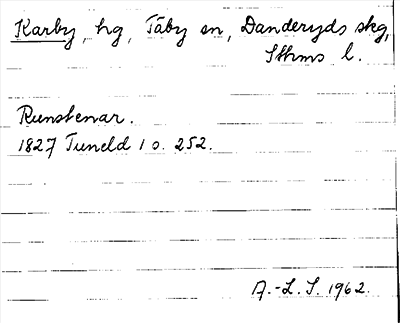 Karby, hg, Täby sn, Danderyds skg,
Sthms l.
Runstenar.
1827 Tuneld 1 o. 252.
A.-L. S. 1962.